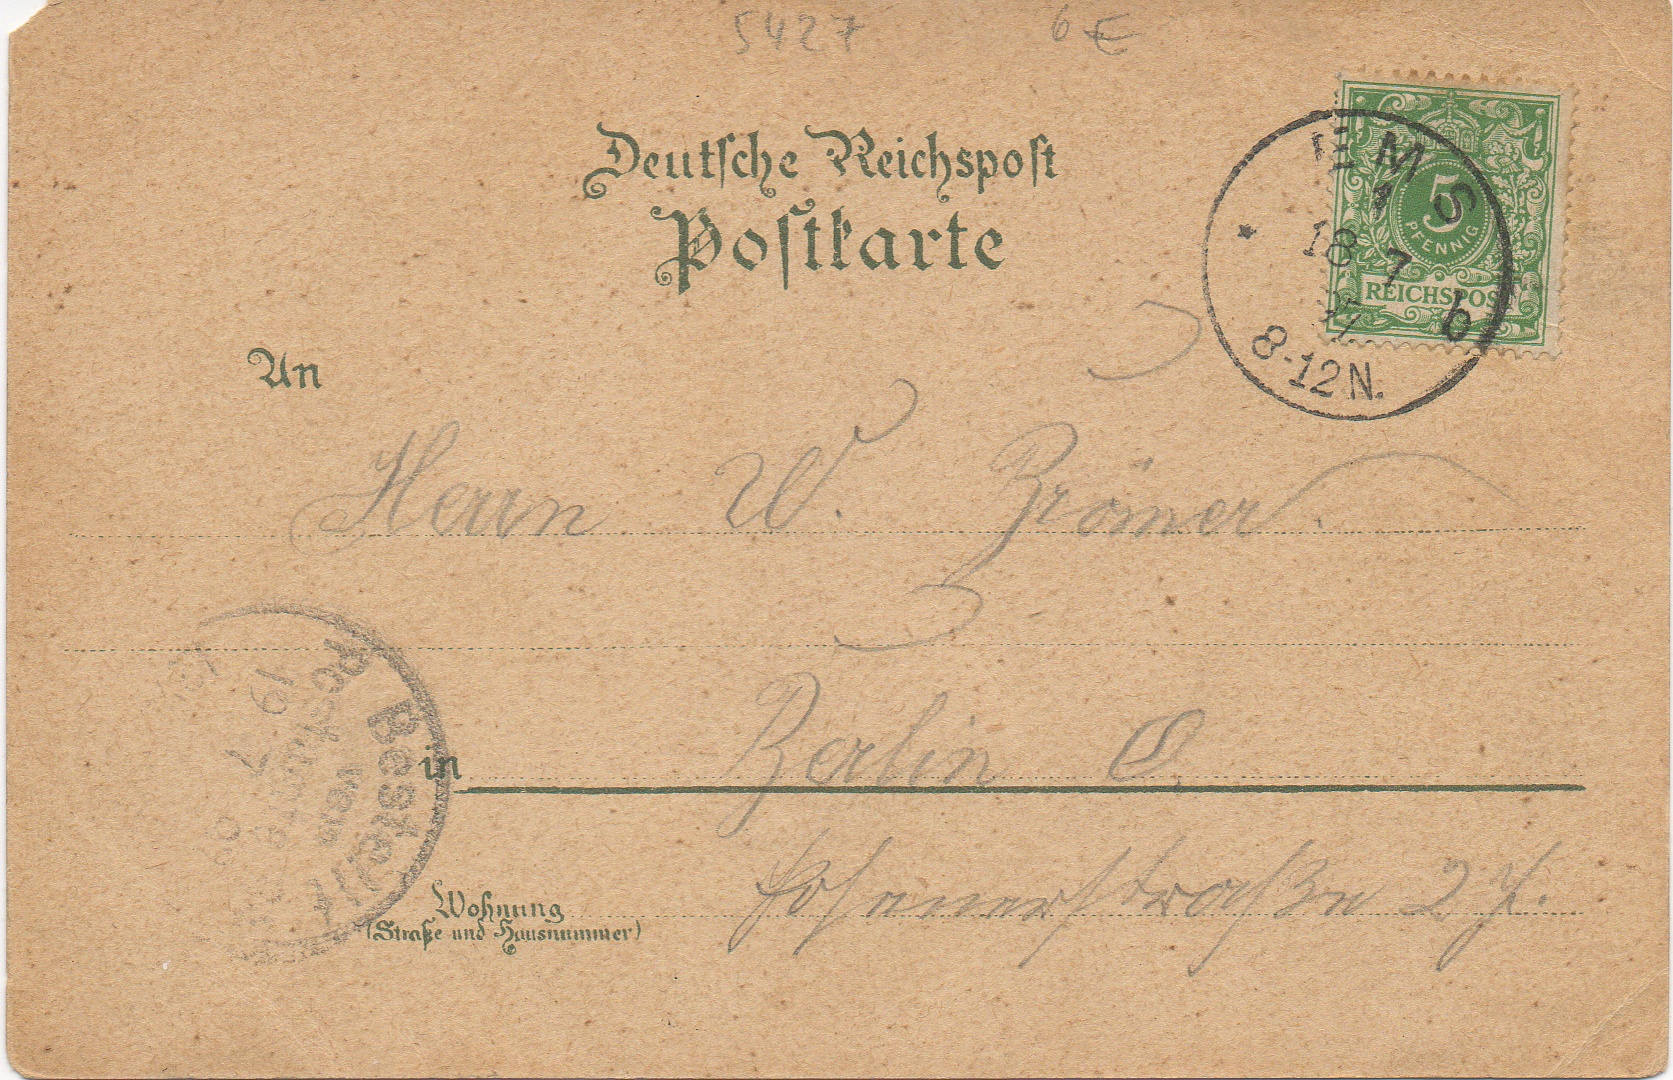 5427 6€
Deutsche Reichspost
Postkarte
EMS
1
18 7
97
8-12N.
b
5
PFENNIG
REICHSPOST
An
Herrn W.
in Berlin C
Wohnung
(Straße und Hausnummer)
Bestellt
vom
Postamte
19
7